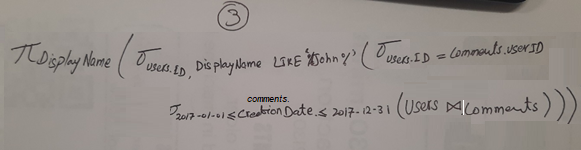 3
π DisplayName ( σ users.ID, DisplayName LIKE '%John%' ( σ users.ID = Comments.userID
comments.
σ 2017-01-01 ≤ CreationDate ≤ 2017-12-31 (Users ⋈ Comments ) ) )